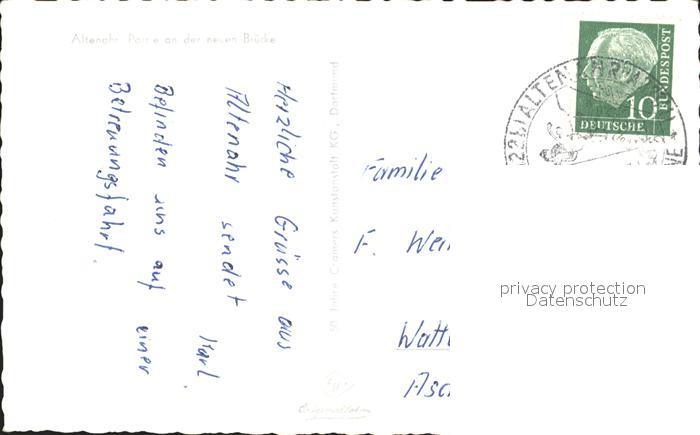 Altenahr Partie an der neuen Brücke
Herzliche Grüsse aus
Altenahr sendet
Karl.
Befinden uns auf einer
Betreuungsfahrt.
50 Jahre Cramers Kunstanstalt KG., Dortmund
Familie
F. Wei
Watt
Asc
10
DEUTSCHE
BUNDESPOST
(22b) ALTENAHR
privacy protection
Datenschutz